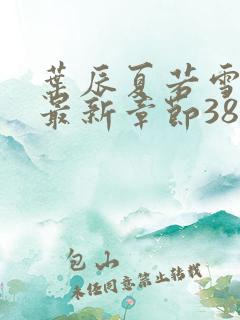 葉辰夏若雪
最新章節38
包山
未经同意禁止转载